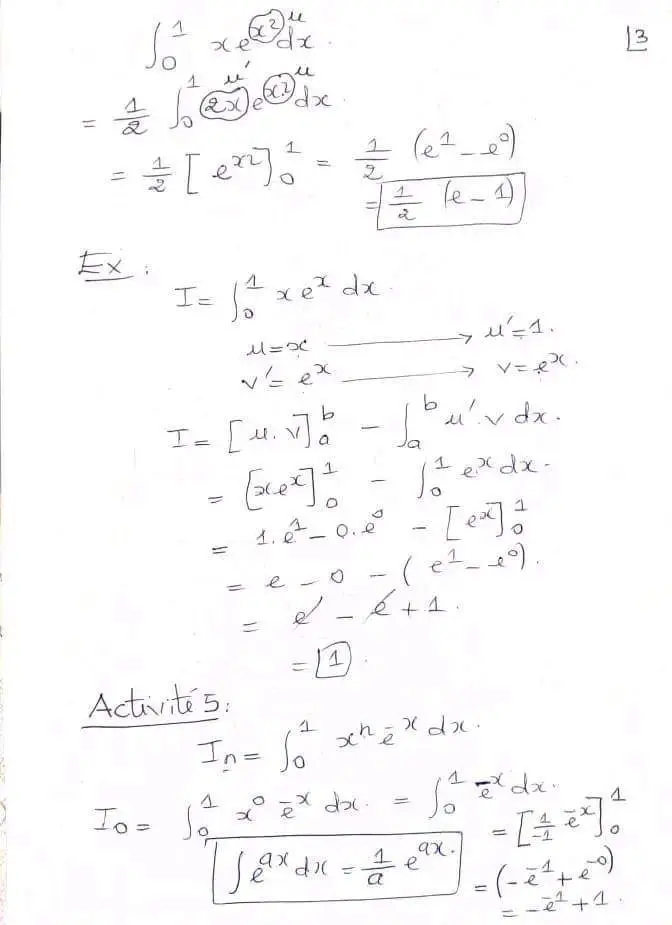 ∫₀¹ x e^(x²) dx. u
|3
= 1/2 ∫₀¹ 2x e^(x²) dx. u' u
= 1/2 [e^(x²)]₀¹ = 1/2 (e¹ − e⁰)
= 1/2 (e − 1)
Ex :
I = ∫₀¹ x e^x dx.
u = x ⟶ u' = 1.
v' = e^x ⟶ v = e^x.
I = [u.v]ₐᵇ − ∫ₐᵇ u'.v dx.
= [x e^x]₀¹ − ∫₀¹ e^x dx.
= 1.e¹ − 0.e⁰ − [e^x]₀¹
= e − 0 − (e¹ − e⁰).
= e − e + 1.
= 1.
Activité 5:
Iₙ = ∫₀¹ xⁿ e^(−x) dx.
I₀ = ∫₀¹ x⁰ e^(−x) dx. = ∫₀¹ e^(−x) dx.
= [1/−1 e^(−x)]₀¹
∫ e^(ax) dx = 1/a e^(ax).
= (−e^(−1) + e^(−0))
= −e^(−1) + 1.